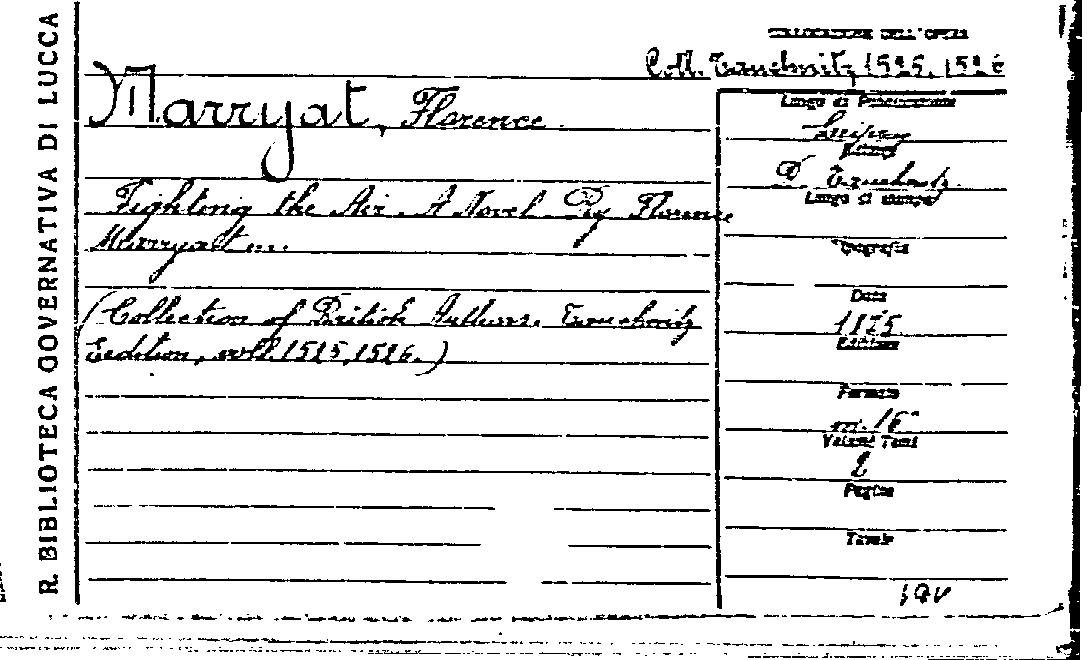 R. BIBLIOTECA GOVERNATIVA DI LUCCA
COLLOCAZIONE DELL'OPERA
Coll. Tauchnitz, 1525, 1526
Marryat, Florence
Fighting the Air. A Novel By Florence
Marryat
(Collection of British Authors. Tauchnitz
Eedition, voll. 1525, 1526.)
Luogo di Pubblicazione
Leipzig
Editore
B. Tauchnitz
Luogo di stampa
Tipografia
Data
1875
Edizione
Formato
in. 16°
Volumi Tomi
2
Pagine
Tavole